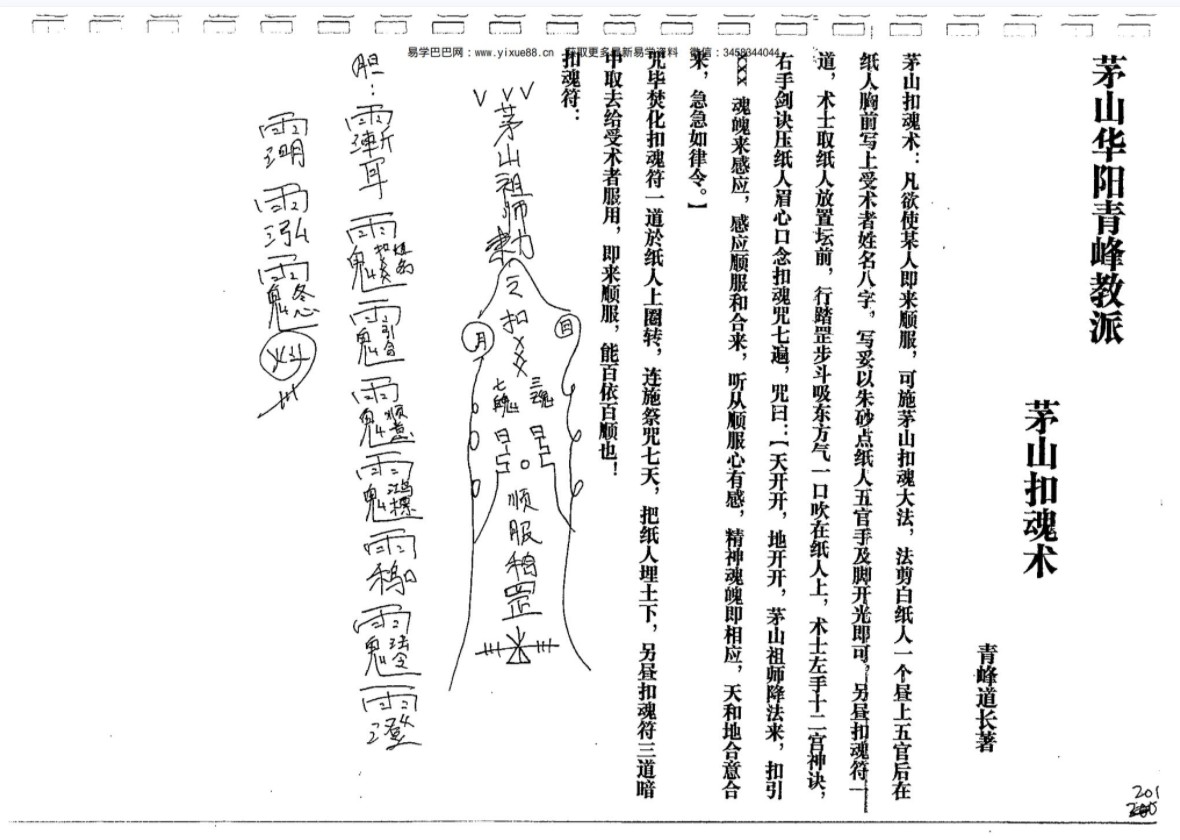 易学巴巴网：www.yixue88.cn 获取更多最新易学资料 微信：3458344044
茅山华阳青峰教派
茅山扣魂术
青峰道长著
茅山扣魂术：凡欲使某人即来顺服，可施茅山扣魂大法，法剪白纸人一个昼上五官后在
纸人胸前写上受术者姓名八字，写妥以朱砂点纸人五官手及脚开光即可，另昼扣魂符一
道，术士取纸人放置坛前，行踏罡步斗吸东方气一口吹在纸人上，术士左手十二宫神诀，
右手剑诀压纸人眉心口念扣魂咒七遍，咒曰：【天开开，地开开，茅山祖师降法来，扣引
××× 魂魄来感应，感应顺服和合来，听从顺服心有感，精神魂魄即相应，天和地合意合
来，急急如律令。】
咒毕焚化扣魂符一道於纸人上圈转，连施祭咒七天，把纸人埋土下，另昼扣魂符三道暗
中取去给受术者服用，即来顺服，能百依百顺也！
扣魂符：
茅山祖师勅
令扣××
月
日
七魄
三魂
顺服
罡
胆：
201